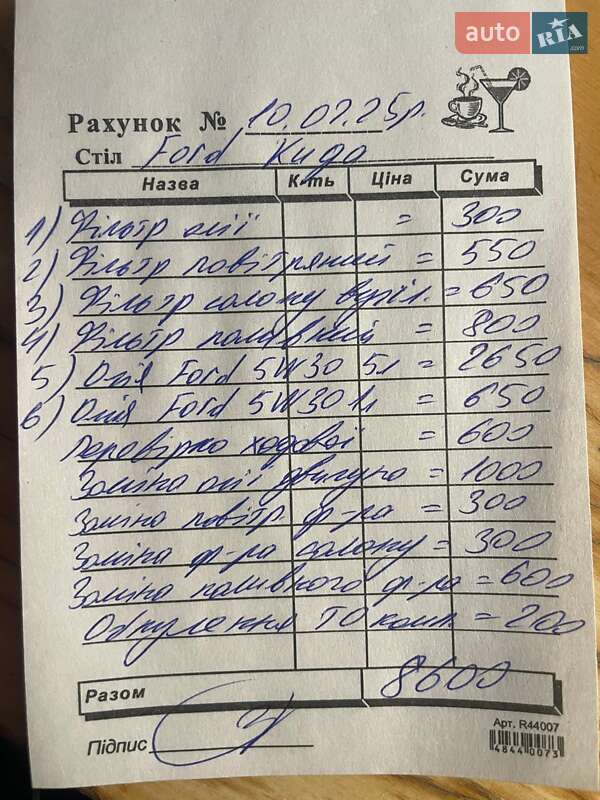 auto RIA .com
Рахунок № 10.07.25р.
Стіл Ford Kuga
Назва К-ть Ціна Сума
1) Фільтр олії = 300
2) Фільтр повітряний = 550
3) Фільтр салону вугіл. = 650
4) Фільтр паливний = 800
5) Олія Ford 5W30 5л = 2650
6) Олія Ford 5W30 1л = 650
Перевірка ходової = 600
Заміна олії двигуна = 1000
Заміна повітр. ф-ра = 300
Заміна ф-ра салону = 300
Заміна паливного ф-ра = 600
Обнулення ТО комп. = 200
Разом 8600
Арт. R44007
Підпис
4844 0073